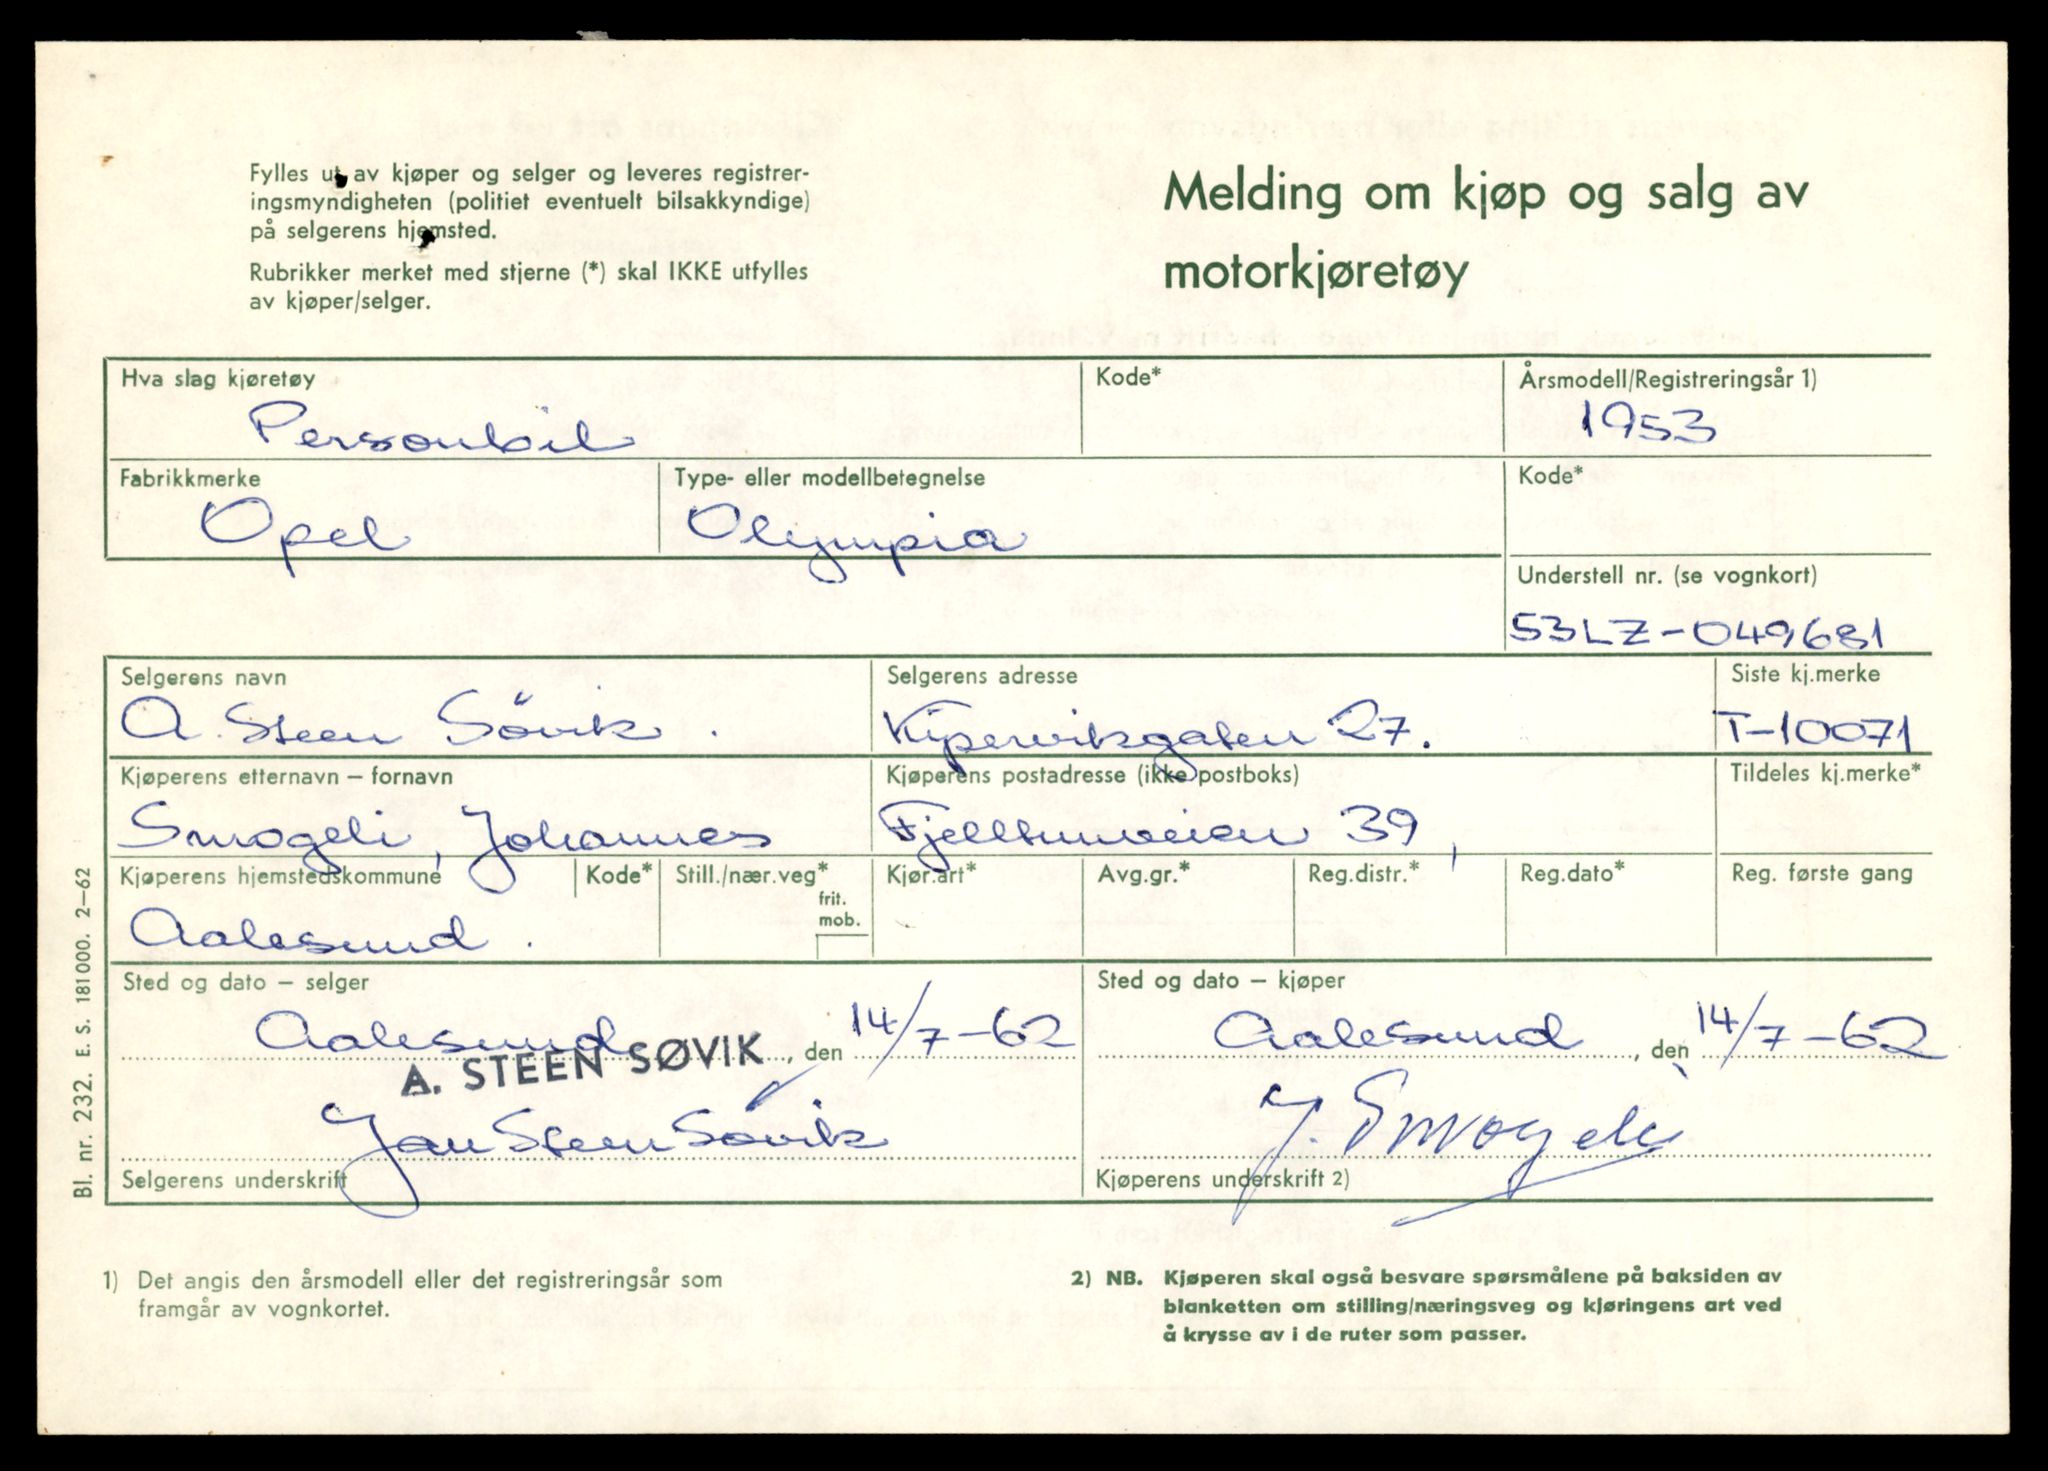 Fylles ut av kjøper og selger og leveres registrer-
ingsmyndigheten (politiet eventuelt bilsakkyndige)
på selgerens hjemsted.
Rubrikker merket med stjerne (*) skal IKKE utfylles
av kjøper/selger.
Melding om kjøp og salg av
motorkjøretøy
Hva slag kjøretøy
Personbil
Kode*
Årsmodell/Registreringsår 1)
1953
Fabrikkmerke
Opel
Type- eller modellbetegnelse
Olympia
Kode*
Understell nr. (se vognkort)
53LZ-049681
Selgerens navn
A. Steen Søvik.
Selgerens adresse
Kipervikgaten 27.
Siste kj.merke
T-10071
Kjøperens etternavn – fornavn
Smogeli, Johannes
Kjøperens postadresse (ikke postboks)
Fjelltunveien 39,
Tildeles kj.merke*
Kjøperens hjemstedskommune
Aalesund.
Kode*
Still./nær.veg*
frit.
mob.
Kjør.art*
Avg.gr.*
Reg.distr.*
Reg.dato*
Reg. første gang
Sted og dato – selger
Aalesund, den 14/7-62
A. STEEN SØVIK
Jan Steen Søvik
Selgerens underskrift
Sted og dato – kjøper
Aalesund, den 14/7-62
J. Smogeli
Kjøperens underskrift 2)
1) Det angis den årsmodell eller det registreringsår som
framgår av vognkortet.
2) NB. Kjøperen skal også besvare spørsmålene på baksiden av
blanketten om stilling/næringsveg og kjøringens art ved
å krysse av i de ruter som passer.
Bl. nr. 232. E. S. 181000. 2–62